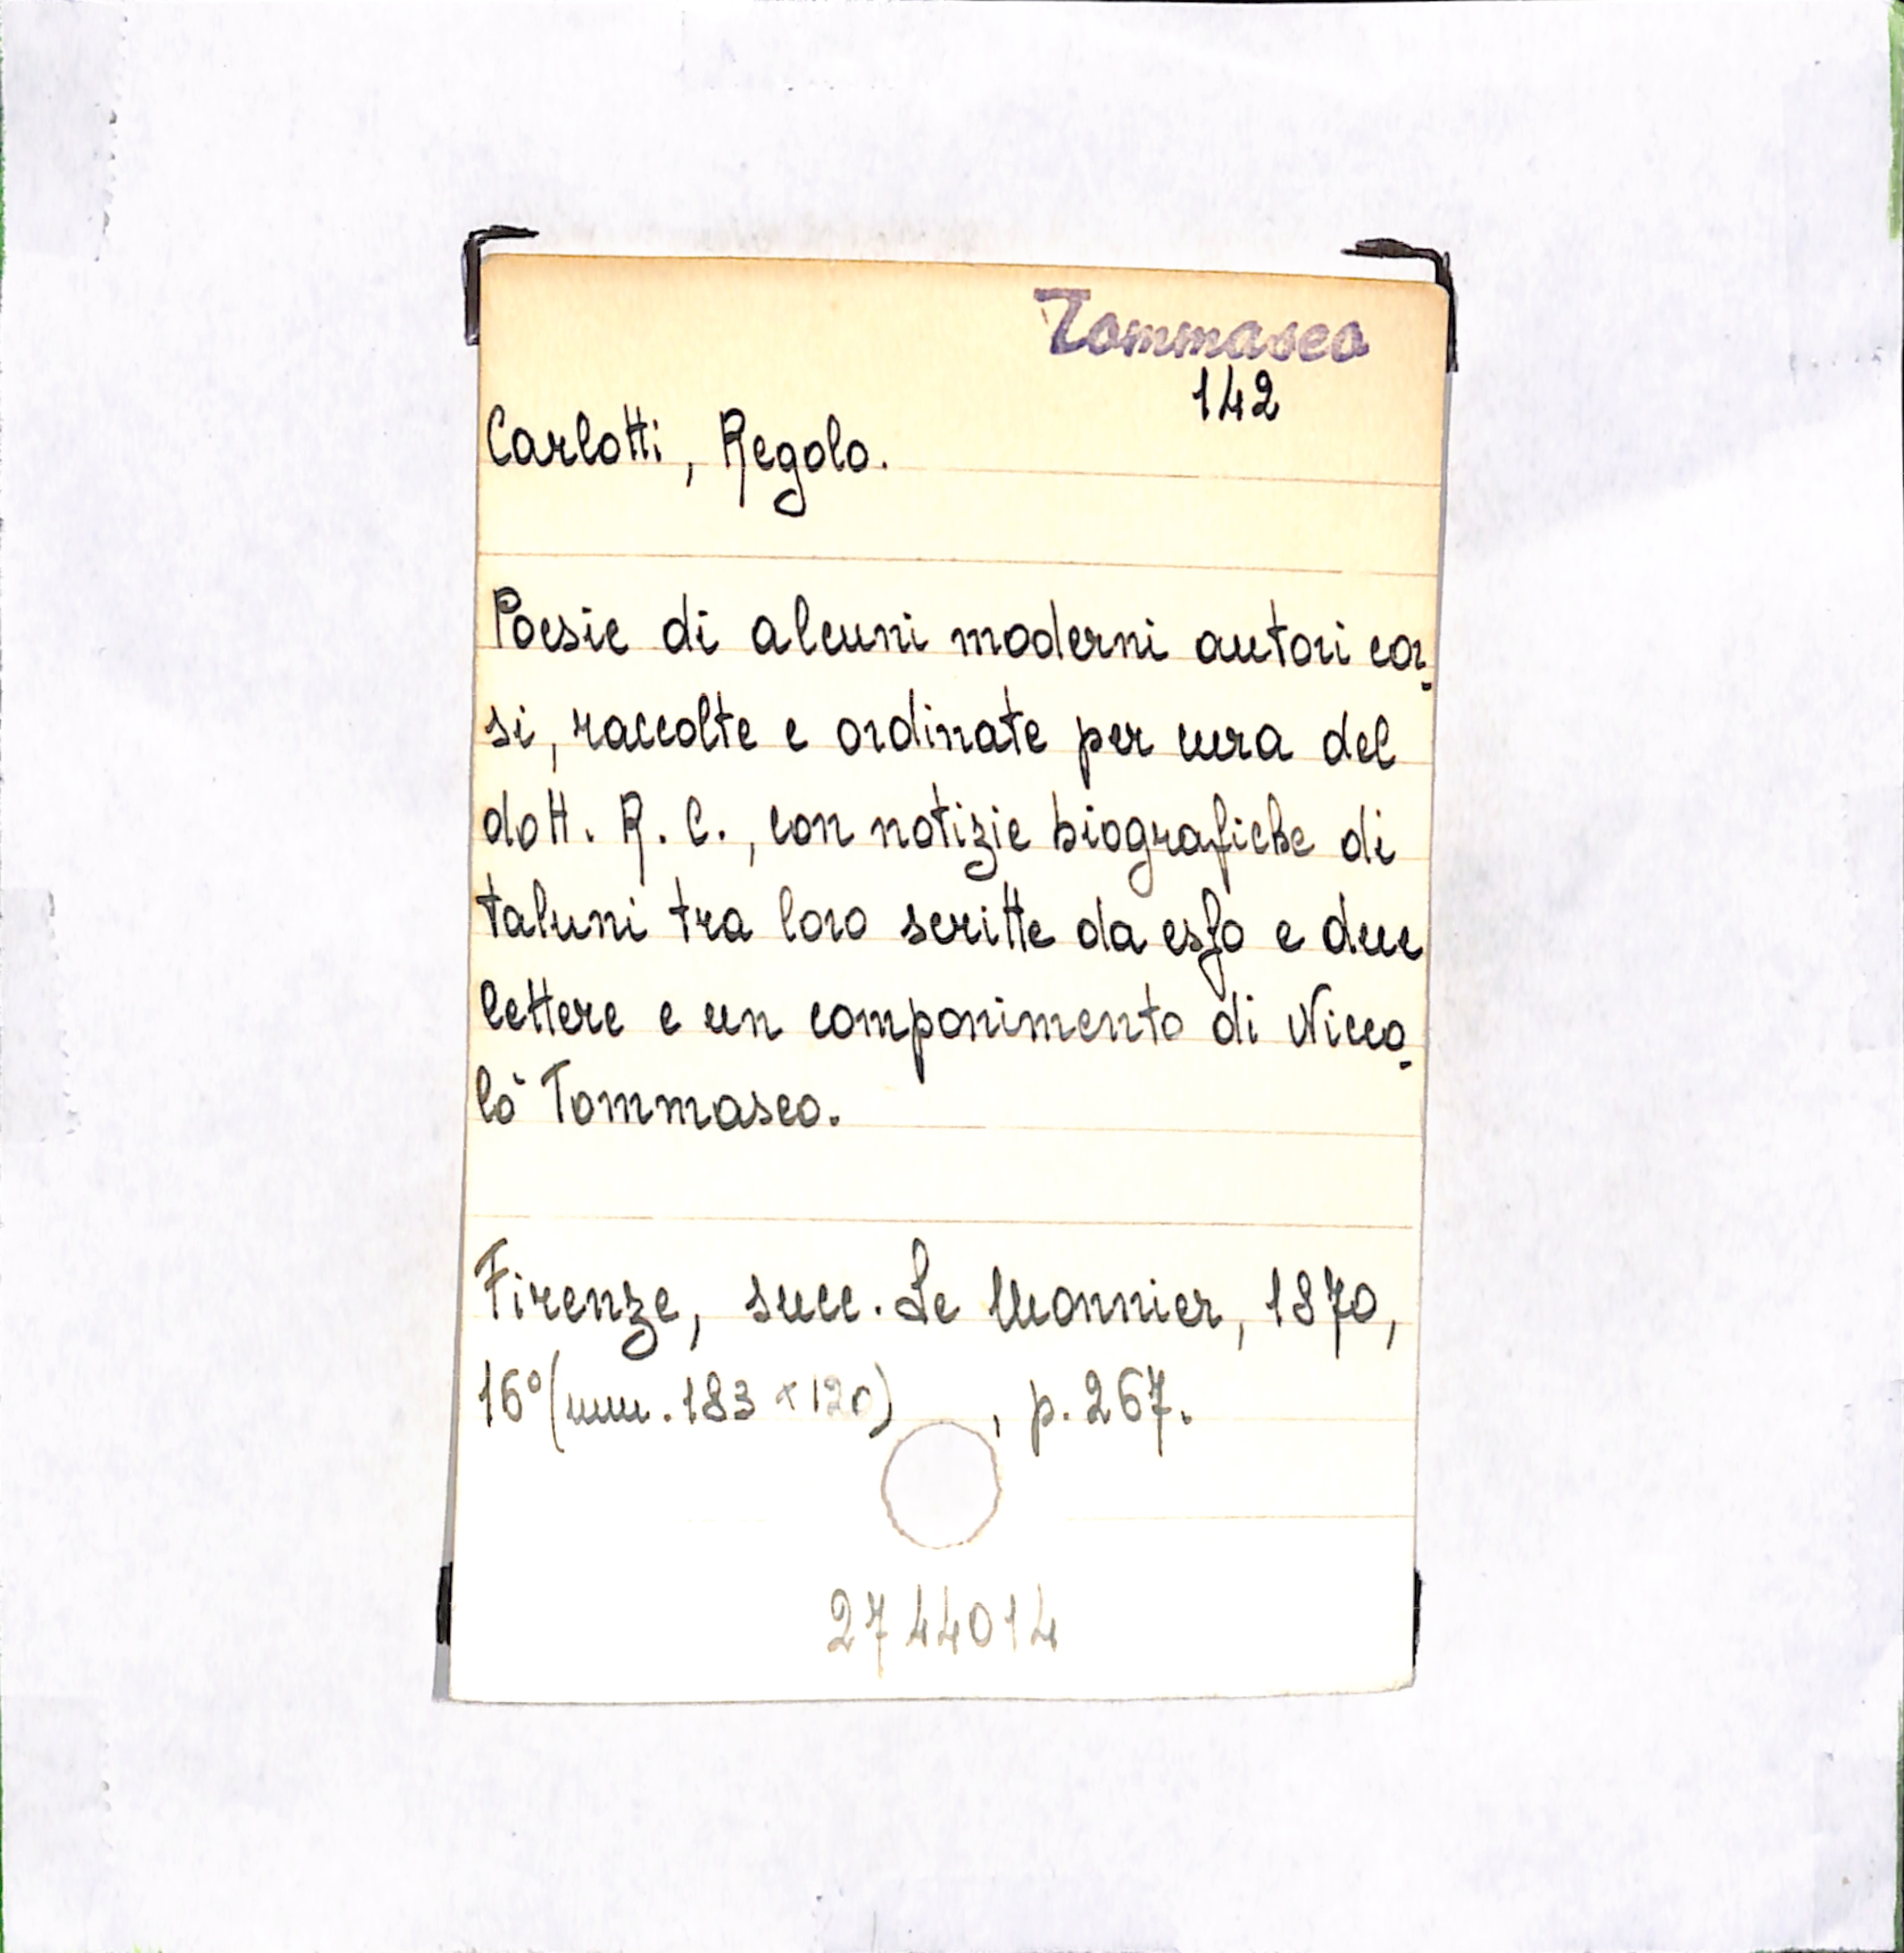 Tommaseo
142
Carlotti, Regolo.
Poesie di alcuni moderni autori cor-
si, raccolte e ordinate per cura del
dott. R. C., con notizie biografiche di
taluni tra loro scritte da esso e due
lettere e un componimento di Nicco-
lò Tommaseo.
Firenze, succ. Le Monnier, 1870,
16° (mm. 183 x 120) , p. 267.
2744014